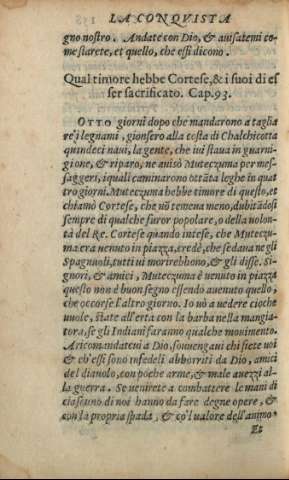 LA CONQVISTA
gno nostro. Andate con Dio, & auisatemi co-
me starete, et quello, che essi dicono.
Qual timore hebbe Cortese, & i suoi di es
ser sacrificato. Cap. 93.
OTTO giorni dopo che mandarono a taglia
re i legnami, gionsero alla costa di Chalchicotta
quindeci naui, la gente, che iui staua in guarni-
gione, & riparo, ne auisò Muteczuma per mes-
saggeri, i quali caminarono ottāta leghe in quat
tro giorni. Muteczuma hebbe timore di questo, et
chiamò Cortese, che nō temeua meno, dubitādosi
sempre di qualche furor popolare, o della uolon-
tà del Re. Cortese quando intese, che Muteczu-
ma era uenuto in piazza, credè, che se daua ne gli
Spagnuoli, tutti ui morirebbono, & gli disse. Si-
gnori, & amici, Muteczuma è uenuto in piazza
questo non è buon segno essendo auenuto quello,
che occorse l'altro giorno. Io uò a uedere cioche
uuole, state all'erta con la barba nella mangia-
tora, se gli Indiani faranno qualche mouimento.
Aricomandateui a Dio, souuengaui chi siete uoi
& ch'essi sono infedeli abborriti da Dio, amici
del diauolo, con poche arme, & male auezzi al-
la guerra. Se uenirete a combattere le mani di
ciascuno di noi hanno da fare degne opere, &
con la propria spada, & co'l ualore dell'animo
Et